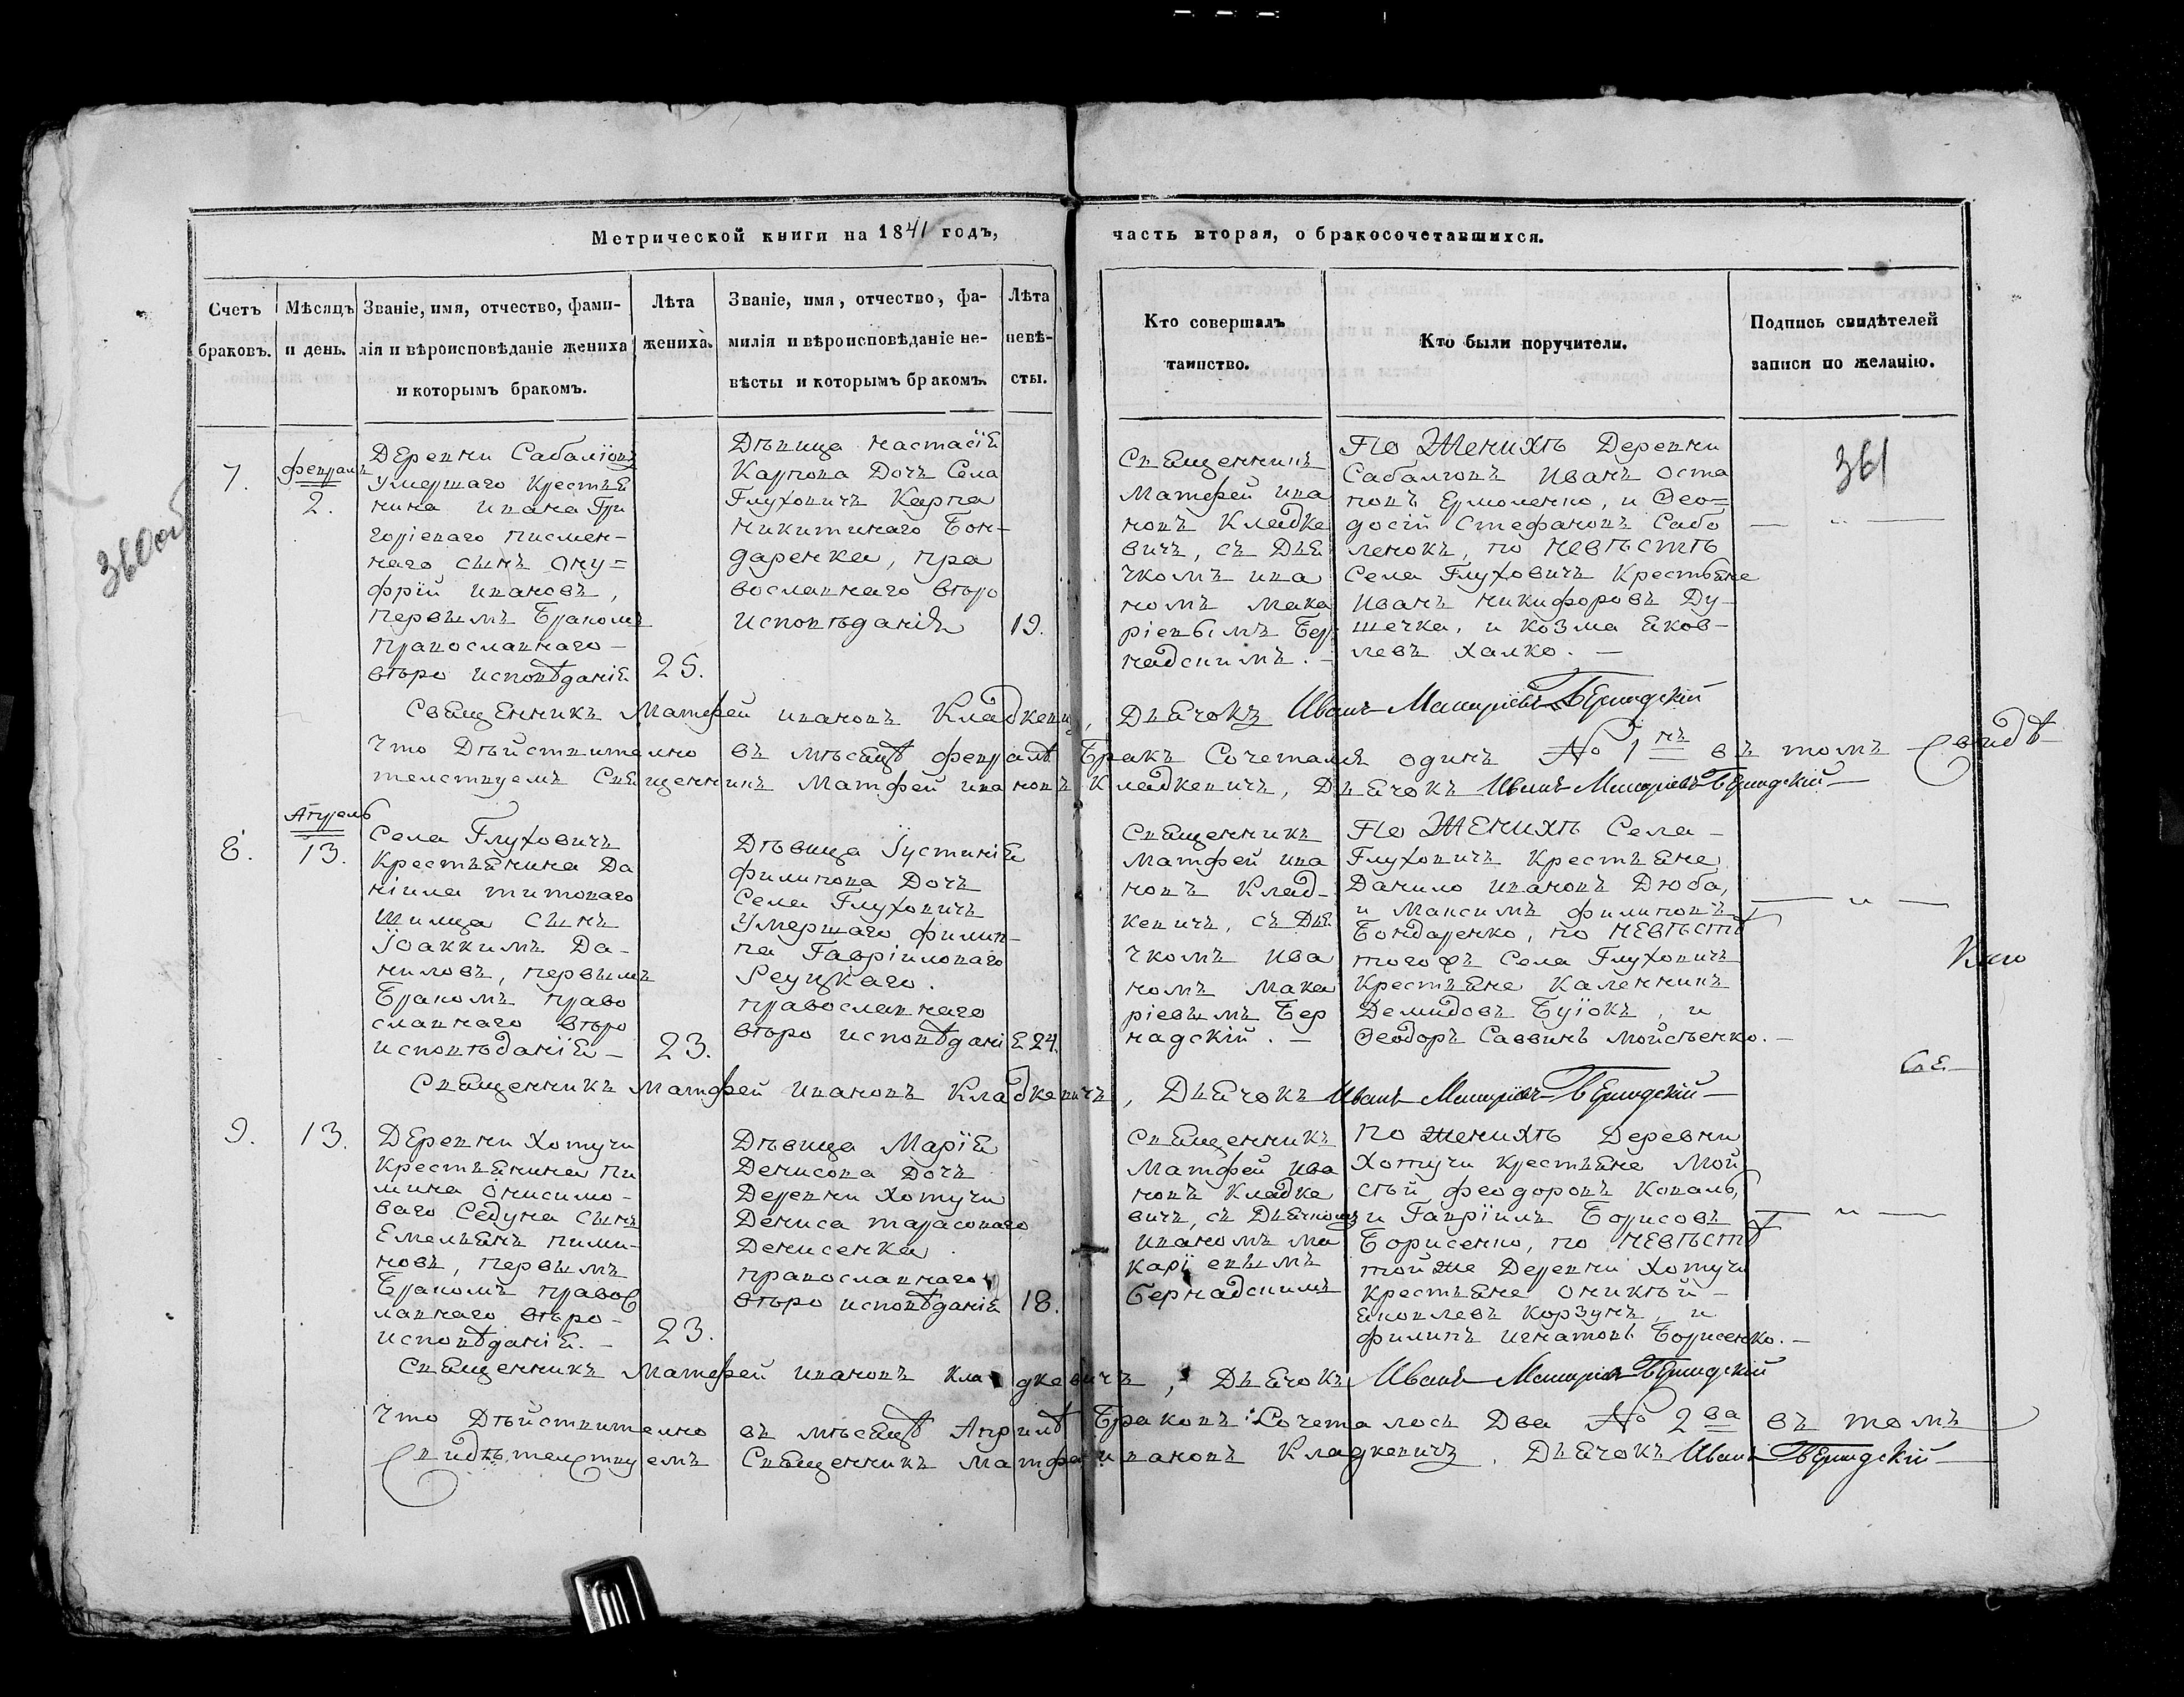 Метрической книги на 1841 годъ,
часть вторая, о бракосочетавшихся.
Счетъ
браковъ.
Мѣсяцъ
и день.
Званіе, имя, отчество, фами-
лія и вѣроисповѣданіе жениха
и которымъ бракомъ.
Лѣта
жениха.
Званіе, имя, отчество, фа-
милія и вѣроисповѣданіе не-
вѣсты и которымъ бракомъ.
Лѣта
невѣ-
сты.
Кто совершалъ
таинство.
Кто были поручители.
Подпись свидѣтелей
записи по желанію.
360об
361
7.
февраль
2.
Деревни Сабаліовъ
умершаго Крестья
нина Ивана Гри
горіеваго Писмен-
наго сынъ Ону=
фрій Ивановъ,
первымъ Бракомъ
православнаго -
вѣро исповѣданія
25.
Дѣвица Настасія
Карпова Дочь Села
Глуховичъ Карпа
Никитинаго Бон-
даренка, пра
вославнаго вѣро
исповѣданія
19.
Священникъ
Матфей Ива
новъ Кладке
вичъ, съ Дья
чкомъ Ива
номъ Мака
ріевымъ Бер
надскимъ. -
По Женихѣ Деревни
Сабаліовъ Иванъ Оста
повъ Ермоленко, и Ѳео=
досій Стефановъ Сабо
ленокъ, по невѣстѣ
Села Глуховичъ Крестьяне
Иванъ Никифоровъ Ду-
шечка, и Козма Яков-
левъ Халко. -
Священникъ Матфей Ивановъ Кладкевичъ, Дьячокъ Иванъ Макаріевъ Бернадскій
Что Дѣйствително въ мѣсяцѣ февралѣ Бракъ Сочетался одинъ № 1нъ въ томъ Свидѣ
телствуемъ Священникъ Матфей Ивановъ Кладкевичъ, Дьячокъ Иванъ Макаріевъ Бернадскій
8.
Апрель
13.
Села Глуховичъ
Крестьянина Да
ніила Титоваго
Шилца Сынъ
Іоаккимъ Да-
ниловъ, первымъ
Бракомъ право
славнаго вѣро
исповѣданія -
23.
Дѣвица Іустинія
Филипова Дочь
Села Глуховичъ
Умершаго Филип-
па Гавріиловаго
Реуцкаго.
православнаго
вѣро исповѣданія
24.
Священникъ
Матфей Ива
новъ Клад-
кевичъ, съ Дья
чкомъ Ива
номъ Мака
ріевымъ Бер
надскій. -
По Женихѣ Села -
Глуховичъ Крестьяне
Данило Ивановъ Дюба,
и Максимъ Филиповъ
Бондаренко, по невѣстѣ
тогожъ Села Глуховичъ
Крестьяне Каленникъ
Демидовъ Буіокъ, и
Ѳеодоръ Саввинъ Мойсѣенко. -
Священникъ Матфей Ивановъ Кладкевичъ, Дьячокъ Иванъ Макаріевъ Бернадскій
9.
13.
Деревни Хотучи
Крестьянина Пи
мина Онисимо-
ваго Седуна Сынъ
Емельянъ Пими-
новъ, первымъ
Бракомъ правос
лавнаго вѣро-
исповѣданія. -
23.
Дѣвица Марія
Денисова Дочь
Деревни Хотучи
Дениса Тарасоваго
Денисенка.
православнаго
вѣро исповѣданія
18.
Священникъ
Матфей Ива
новъ Кладке
вичъ, съ Дьячкомъ
Иваномъ Ма
каріевымъ
Бернадскимъ
По Женихѣ Деревни
Хотучи Крестьяне Мой
сѣй Феодоровъ Коваль,
и Гавріилъ Борисовъ
Борисенко, по невѣстѣ
тойже Деревни Хотучи
Крестьяне Оникѣй -
Яковлевъ Корзунъ, и
Филипъ Игнатовъ Борисенко. -
Священникъ Матфей Ивановъ Кладкевичъ, Дьячокъ Иванъ Макаріевъ Бернадскій
Что Дѣйствително въ мѣсяцѣ Априлѣ Браковъ Сочеталось Два № 2ва въ томъ
Свидѣтелствуемъ Священникъ Матфей Ивановъ Кладкевичъ. Дьячокъ Иванъ Бернадскій